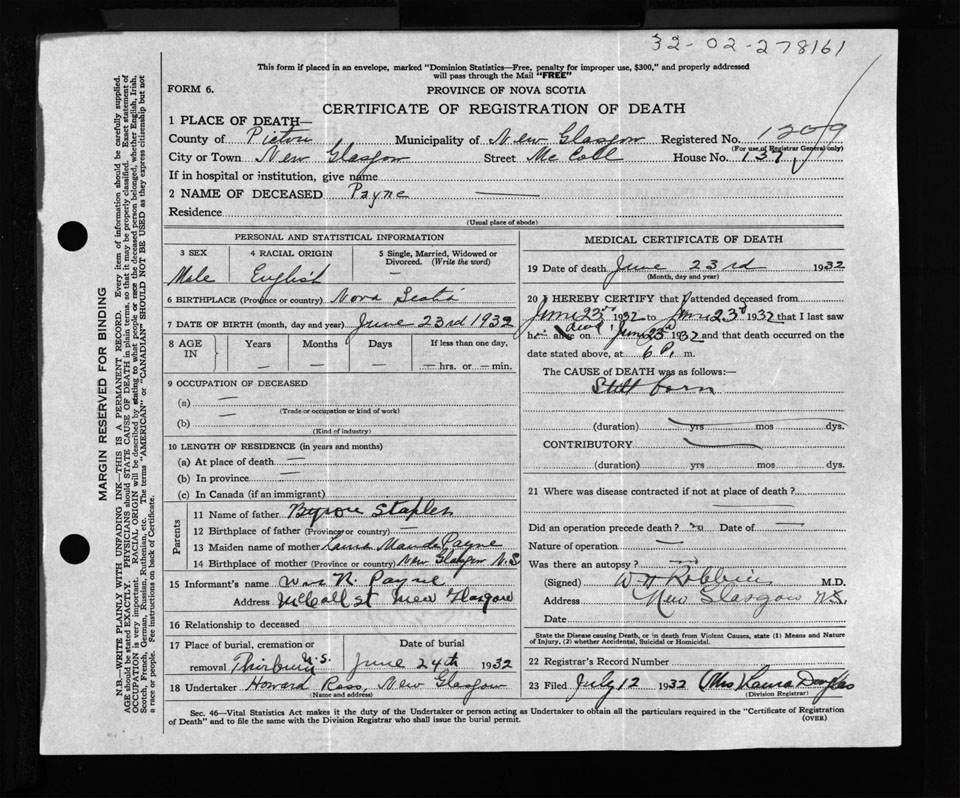 32-02-278161
This form if placed in an envelope, marked "Dominion Statistics—Free, penalty for improper use, $300," and properly addressed
will pass through the Mail "FREE"
FORM 6.
PROVINCE OF NOVA SCOTIA
CERTIFICATE OF REGISTRATION OF DEATH
1 PLACE OF DEATH—
County of Pictou Municipality of New Glasgow Registered No. 1209
(For use of Registrar General only)
City or Town New Glasgow Street McColl House No. 137
If in hospital or institution, give name
2 NAME OF DECEASED Payne —
Residence
(Usual place of abode)
PERSONAL AND STATISTICAL INFORMATION
3 SEX
Male
4 RACIAL ORIGIN
English
5 Single, Married, Widowed or
Divorced. (Write the word)
—
6 BIRTHPLACE (Province or country) Nova Scotia
7 DATE OF BIRTH (month, day and year) June 23rd 1932
8 AGE IN
Years Months Days If less than one day,
— — — — hrs. or — min.
9 OCCUPATION OF DECEASED
(a) —
(Trade or occupation or kind of work)
(b) —
(Kind of industry)
10 LENGTH OF RESIDENCE (in years and months)
(a) At place of death —
(b) In province —
(c) In Canada (if an immigrant)
Parents
11 Name of father Byrore Staples
12 Birthplace of father (Province or country) —
13 Maiden name of mother Laura Maude Payne
14 Birthplace of mother (Province or country) New Glasgow N.S
15 Informant's name Wm R. Payne
Address McColl St New Glasgow
16 Relationship to deceased
17 Place of burial, cremation or
removal N.S.
Date of burial
June 24th 1932
18 Undertaker Howard Ross, New Glasgow
(Name and address)
MEDICAL CERTIFICATE OF DEATH
19 Date of death June 23rd 1932
(Month, day and year)
20 I HEREBY CERTIFY that I attended deceased from
June 23rd 1932 to June 23rd 1932 that I last saw
h— alive on dead June 23rd 1932 and that death occurred on the
date stated above, at 6 P. m.
The CAUSE of DEATH was as follows:—
Still born
(duration) yrs mos dys.
CONTRIBUTORY
(duration) yrs mos dys.
21 Where was disease contracted if not at place of death? —
Did an operation precede death? no Date of —
Nature of operation —
Was there an autopsy? no
(Signed) W H Robbins M.D.
Address New Glasgow N.S.
Date
State the Disease causing Death, or in death from Violent Causes, state (1) Means and Nature
of Injury, (2) whether Accidental, Suicidal or Homicidal.
22 Registrar's Record Number
23 Filed July 12 1932 (Mrs) Laura Douglas
(Division Registrar)
Sec. 46—Vital Statistics Act makes it the duty of the Undertaker or person acting as Undertaker to obtain all the particulars required in the "Certificate of Registration
of Death" and to file the same with the Division Registrar who shall issue the burial permit.
(OVER)
MARGIN RESERVED FOR BINDING
N.B.—WRITE PLAINLY WITH UNFADING INK—THIS IS A PERMANENT RECORD. Every item of information should be carefully supplied.
AGE should be stated EXACTLY. PHYSICIANS should STATE CAUSE OF DEATH in plain terms, so that it may be properly classified. Exact statement of
OCCUPATION is very important. RACIAL ORIGIN will be described by stating to what people or race the deceased person belonged, whether English, Irish,
Scotch, French, German, Russian, Ruthenian, etc. The terms "AMERICAN" or "CANADIAN" SHOULD NOT BE USED as they express citizenship but not
a race or people. See instructions on back of Certificate.